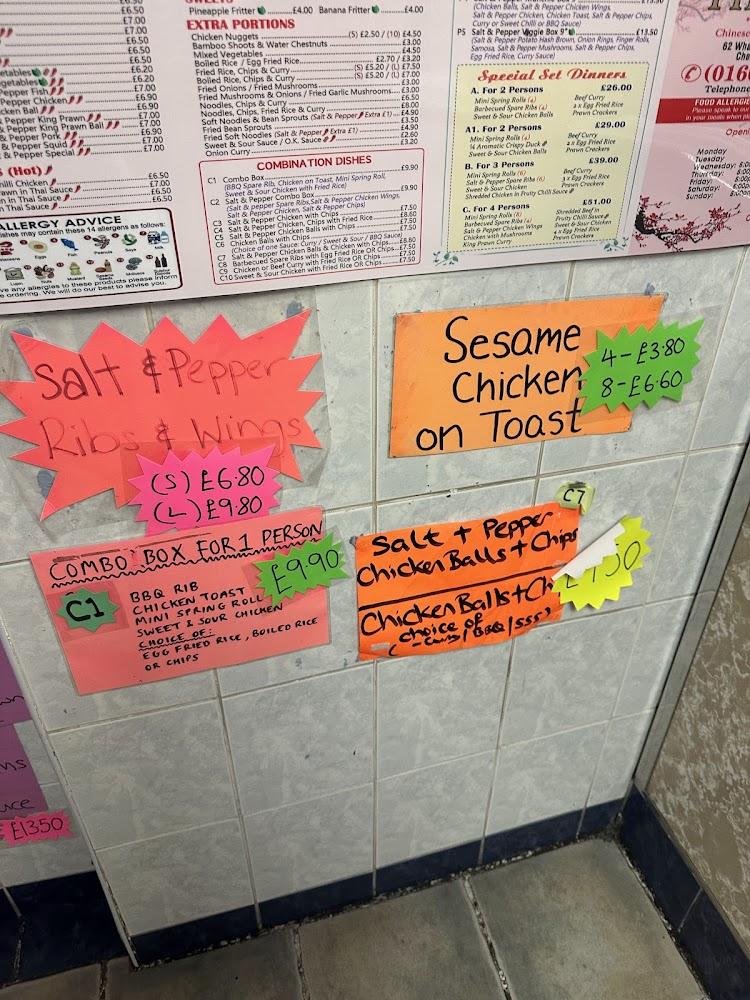 £6.50
£7.00
£7.00
£7.00
£6.50
£6.50
£6.20
£6.20
£7.00
£6.90
£7.00
£7.00
£6.90
£7.00
£7.00
Pepper Fish
Pepper Chicken
King Prawn
King Prawn Ball
Pepper Pork
Pepper Squid
Pepper Special
(Hot)
Chilli Chicken £6.50
in Thai Sauce £7.00
in Thai Sauce £6.50
Thai Sauce
ALLERGY ADVICE
may contain these 14 allergens as follows:
Eggs
Fish
Lupin
Nuts
Mustard
have any allergies to these products please inform
ordering. We will do our best to advise you.
Pineapple Fritter £4.00 Banana Fritter £4.00
EXTRA PORTIONS
Chicken Nuggets (S) £2.50 / (10) £4.50
Bamboo Shoots & Water Chestnuts £3.00
Mixed Vegetables £4.50
Boiled Rice / Egg Fried Rice £2.70 / £3.20
Fried Rice, Chips & Curry (S) £5.20 / (L) £7.50
Boiled Rice, Chips & Curry (S) £5.20 / (L) £7.00
Fried Onions / Fried Mushrooms £3.00
Fried Mushrooms & Onions / Fried Garlic Mushrooms £3.00
Noodles, Chips & Curry £6.50
Noodles, Chips, Fried Rice & Curry £8.00
Soft Noodles & Bean Sprouts (Salt & Pepper Extra £1) £4.90
Fried Bean Sprouts £4.90
Fried Soft Noodles (Salt & Pepper Extra £1)
Sweet & Sour / O.K. Sauce £2.60
Onion Curry £3.20
COMBINATION DISHES
C1 Combo Box £9.90
(BBQ Spare Rib, Chicken on Toast, Mini Spring Roll,
Sweet & Sour Chicken with Fried Rice)
C2 Salt & Pepper Combo Box £9.90
(Salt & Pepper Spare Ribs, Salt & Pepper Chicken Wings,
Salt & Pepper Chicken, Salt & Pepper Chips)
C3 Salt & Pepper Chicken with Chips £7.50
C4 Salt & Pepper Chicken, Chips with Fried Rice £8.60
C5 Salt & Pepper Chicken Balls with Chips £7.50
C6 Chicken Balls with Chips £7.50
(Choice of one Sauce: Curry / Sweet & Sour / BBQ Sauce)
C7 Salt & Pepper Chicken Balls & Chicken Balls with Chips £8.80
C8 Barbecued Spare Ribs with Egg Fried Rice OR Chips £7.50
C9 Chicken or Beef Curry with Fried Rice OR Chips £7.50
C10 Sweet & Sour Chicken with Fried Rice OR Chips £7.50
(Chicken Balls, Salt & Pepper Chicken Wings,
Salt & Pepper Chicken, Chicken Toast, Salt & Pepper Chips,
Curry or Sweet Chilli or BBQ Sauce)
P5 Salt & Pepper Veggie Box 9" £13.50
(Salt & Pepper Potato Hash Brown, Onion Rings, Finger Rolls,
Samosa, Salt & Pepper Mushrooms, Salt & Pepper Chips,
Egg Fried Rice, Curry Sauce)
Special Set Dinners
A. For 2 Persons £26.00
Mini Spring Rolls (4)
Barbecued Spare Ribs (4)
Sweet & Sour Chicken Balls
Beef Curry
2 x Egg Fried Rice
Prawn Crackers
A1. For 2 Persons £29.00
Mini Spring Rolls (4)
¼ Aromatic Crispy Duck
Sweet & Sour Chicken Balls
Beef Curry
2 x Egg Fried Rice
Prawn Crackers
B. For 3 Persons £39.00
Mini Spring Rolls (6)
Salt & Pepper Spare Ribs (6)
Sweet & Sour Chicken
Shredded Chicken in Fruity Chilli Sauce
Beef Curry
3 x Egg Fried Rice
Prawn Crackers
C. For 4 Persons £51.00
Mini Spring Rolls (8)
Barbecued Spare Ribs (4)
Salt & Pepper Chicken Wings
Chicken with Mushrooms
King Prawn Curry
Shredded Beef in
Fruity Chilli Sauce
Sweet & Sour Chicken
4 x Egg Fried Rice
Prawn Crackers
Chinese
62 Wha
Cha
(016
Telephone
FOOD ALLERGI
Please speak to our
in your meals when pl
Openi
Monday
Tuesday
Wednesday
Thursday
Friday:
Saturday:
Sunday:
Salt & Pepper
Ribs & Wings
(S) £6.80
(L) £9.80
Sesame
Chicken
on Toast
4 - £3.80
8 - £6.60
COMBO BOX FOR 1 PERSON
£9.90
C1
BBQ RIB
CHICKEN TOAST
MINI SPRING ROLL
SWEET & SOUR CHICKEN
CHOICE OF:
EGG FRIED RICE, BOILED RICE
OR CHIPS
C7
Salt + Pepper
Chicken Balls + Chips
Chicken Balls + Ch
choice of
(Curry / BBQ / SSS)
50
£13.50